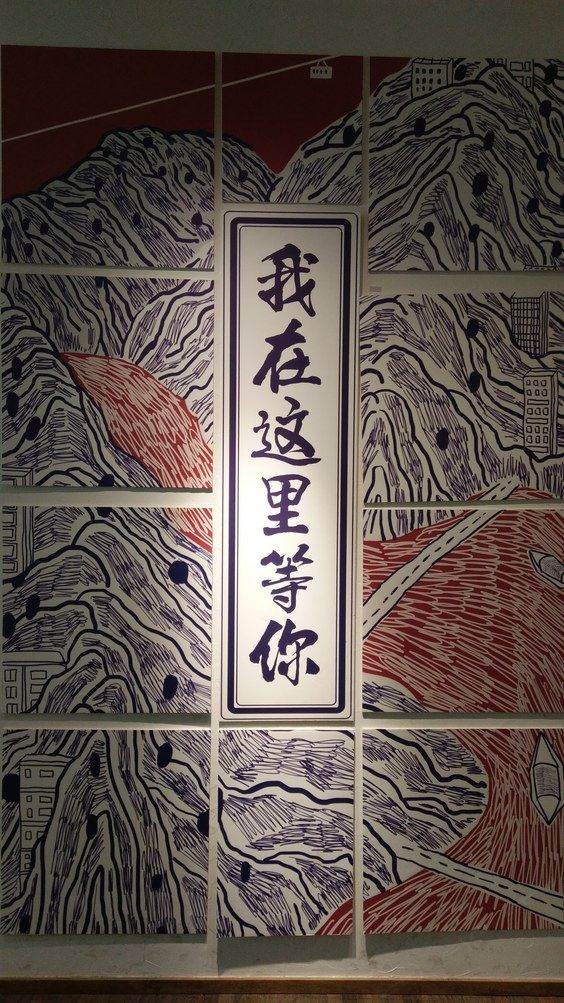 我在这里等你